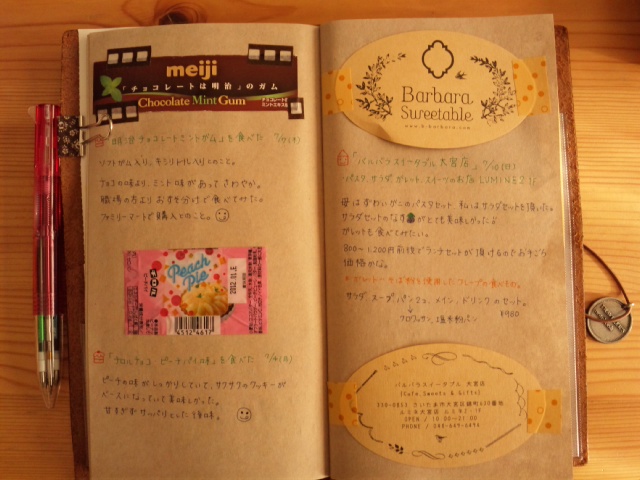 meiji
『チョコレートは明治』のガム
Chocolate Mint Gum
チョコレート&
ミントエキス入り
「明治チョコレートミントガム」を食べた
ソフトガム入り、キシリトール入りとのこと。
チョコの味より、ミント味があってさわやか。
職場の方よりおすそ分けで食べてみた。
ファミリーマートで購入とのこと。
チロルチョコ
Peach
Pie
2012.11.E
「チロルチョコ ピーチパイ味」を食べた
ピーチの味がしっかりしていて、サクサクのクッキーが
ベースになっていて美味しかった。
甘すぎずサッパリとした後味。
Barbara
Sweetable
www.b-barbara.com
「バルバラスイータブル 大宮店」
・パスタ、サラダ、ガレット、スイーツのお店 LUMINE2 1F
母はずわいがにのパスタセット、私はサラダセットを頂いた。
サラダセットの
がとても美味しかった♪
ガレットも食べてみたい。
800〜1,200円前後でランチセットが頂けるのでお手ごろ
価格かな。
そば粉を使用したクレープの食べもの。
サラダ、スープ、パン2コ、メイン、ドリンクのセット。
¥980
クロワッサン、塩米粉パン
バルバラスイータブル 大宮店
(Cafe,Sweets & Gifts)
330-0853 さいたま市大宮区錦町630番地
ルミネ大宮店 ルミネ2・1F
OPEN / 10:00〜21:00
PHONE / 048-649-6496